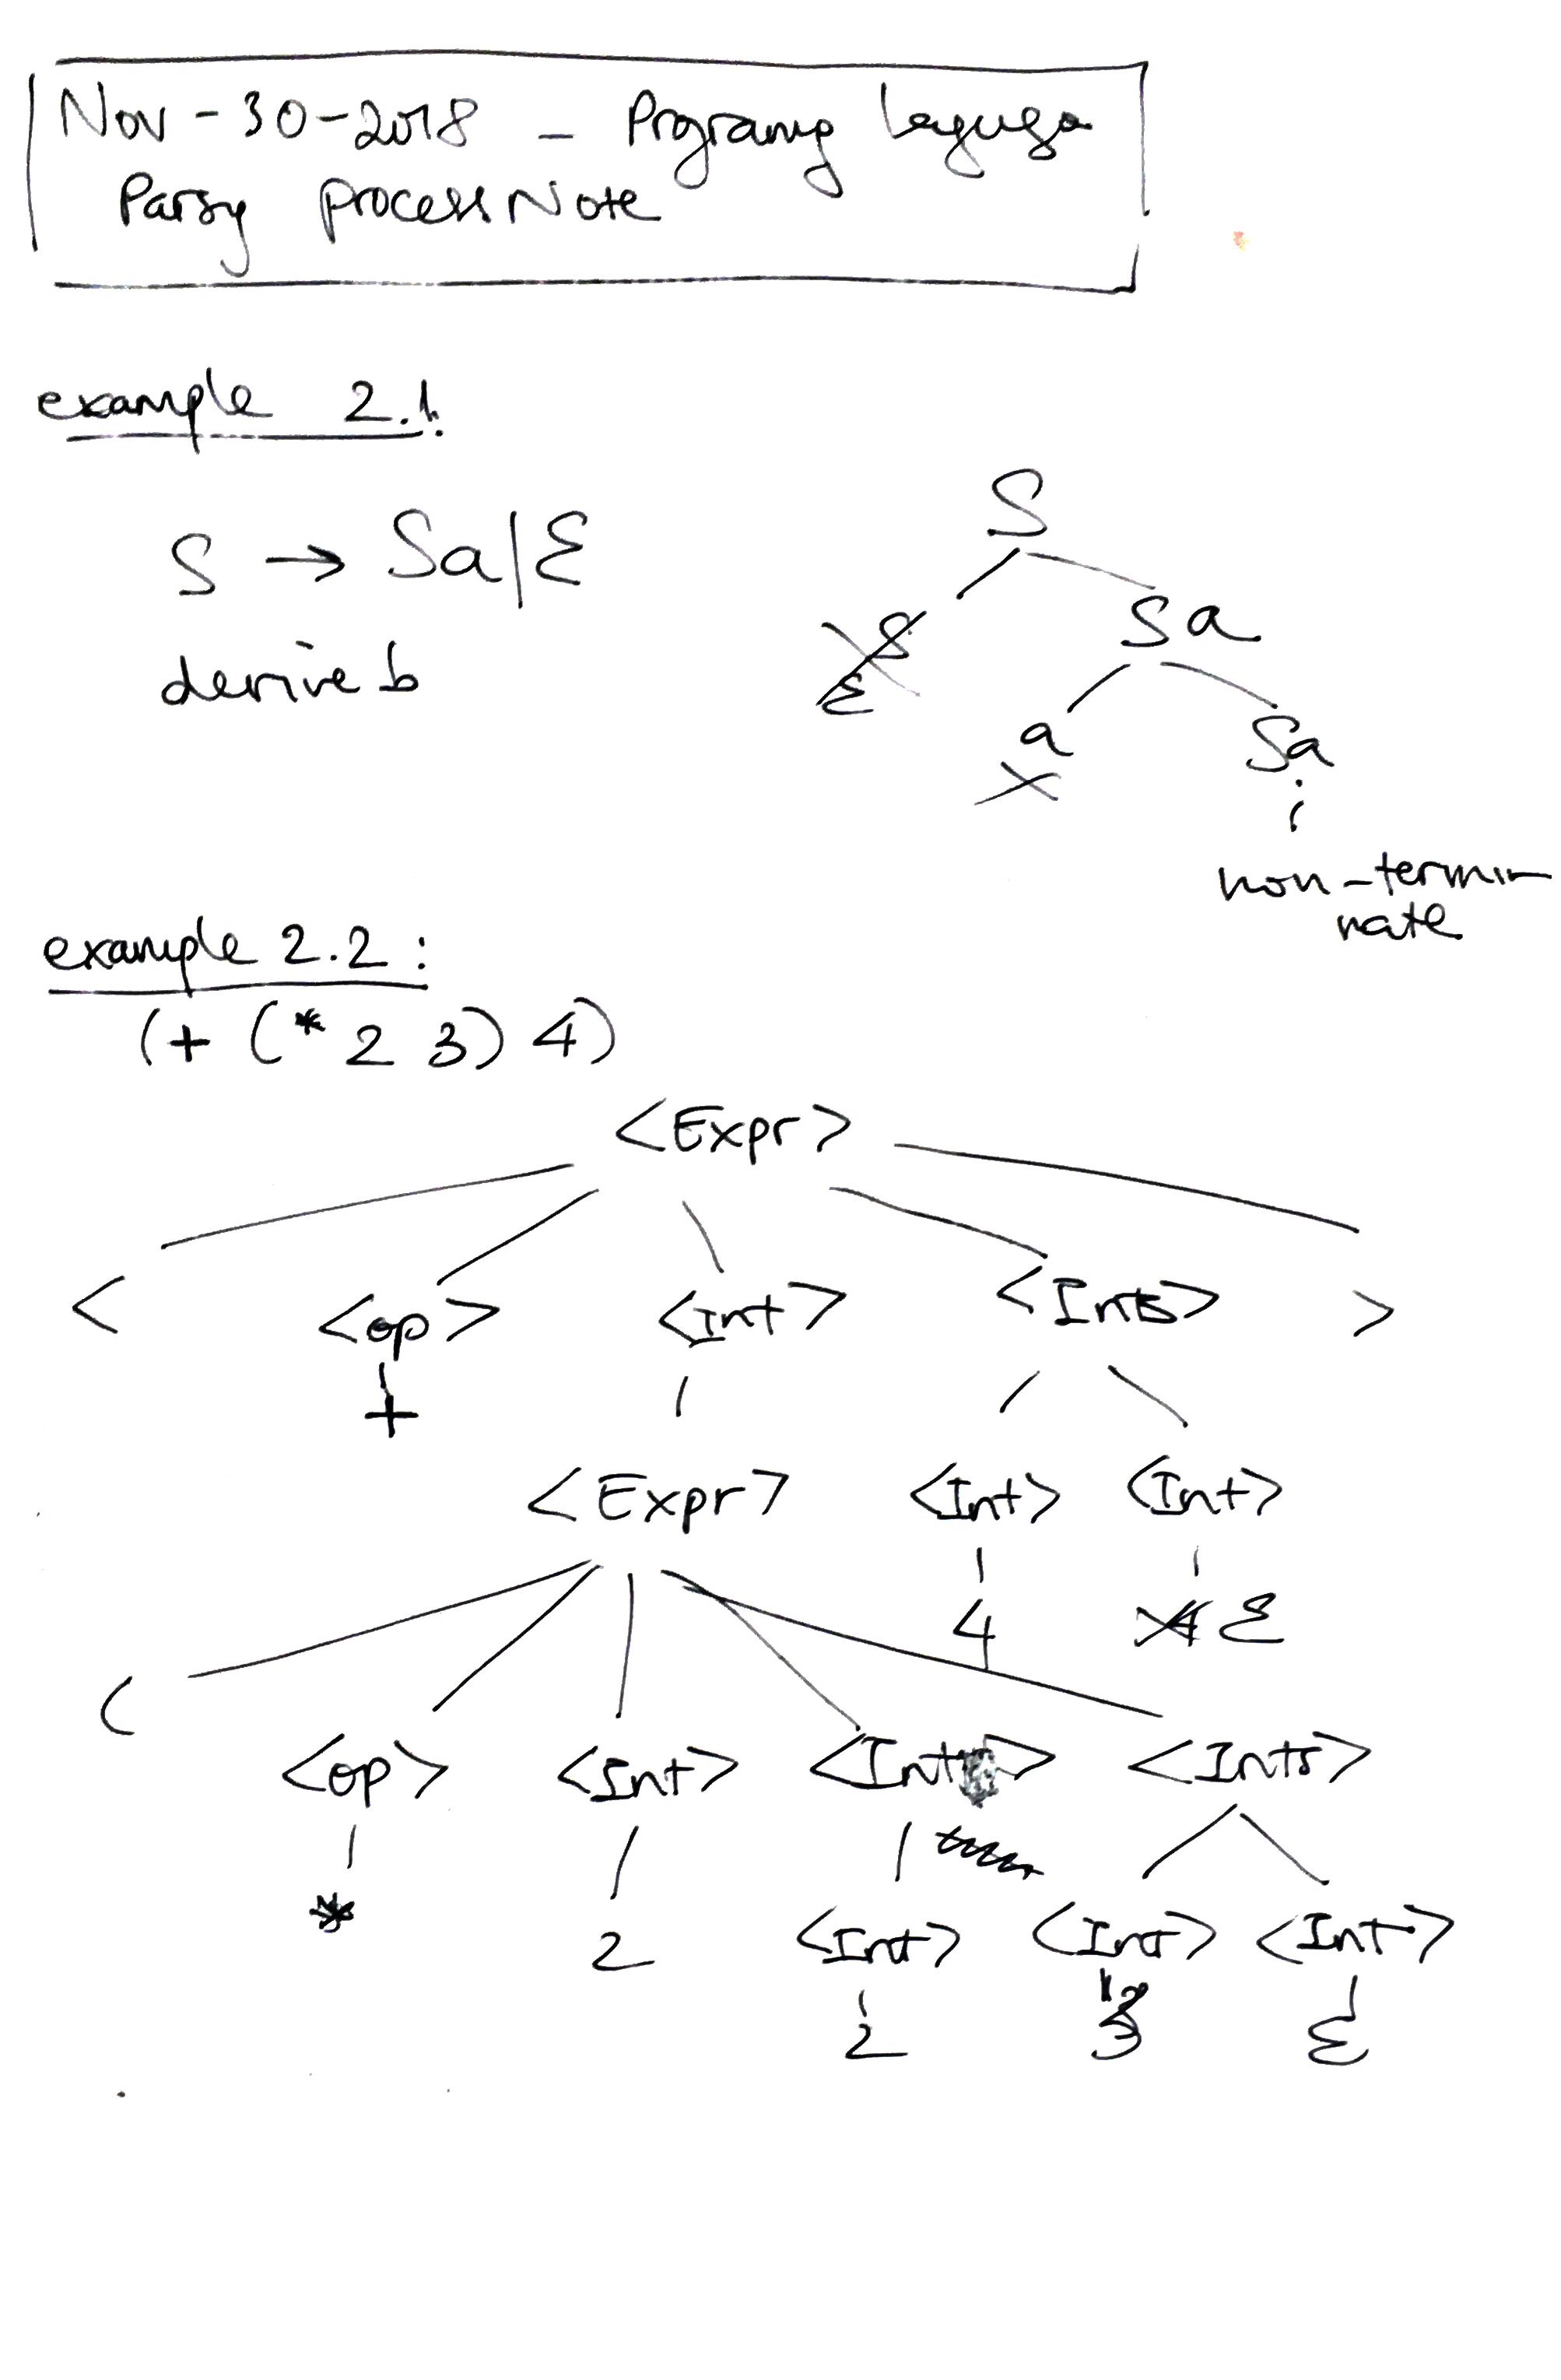 Nov-30-2018 - Programg laguga
Parsg process Note
example 2.1:
S → Sa|ε
derive b
S
Sa
S
ε
a
Sa
non-termi-
nate
example 2.2:
(+ (* 2 3) 4)
<Expr>
< <op> <Int> <Ints> >
+
<Expr> <Int> <Int>
4 ε
(
<op> <Int> <Int> <Ints>
*
2
<Int> <Int> <Int>
2 3 ε